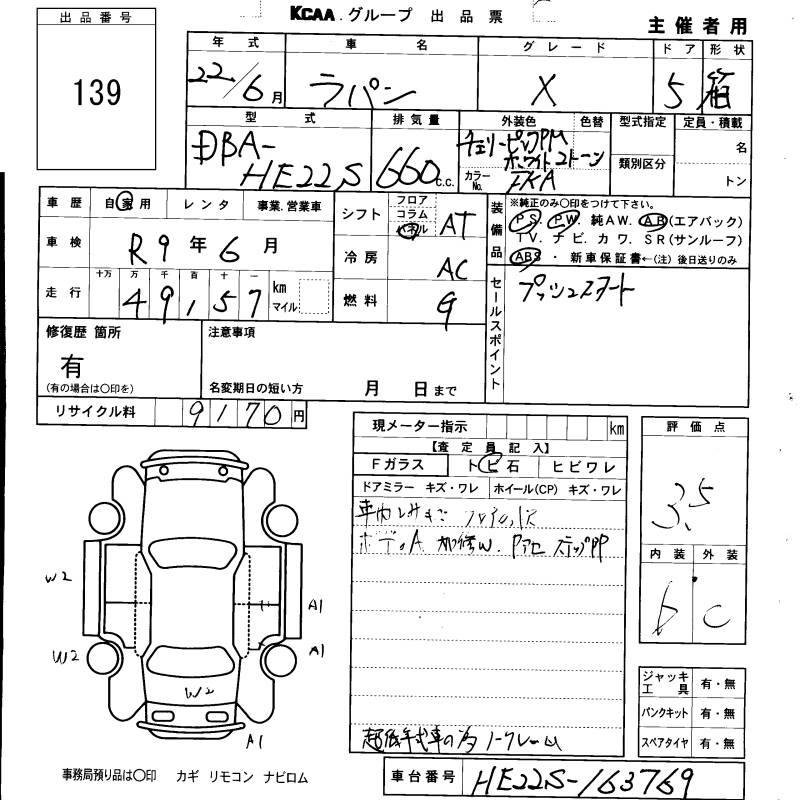 KCAA.グループ 出品票
主催者用
出品番号
139
年式 車名 グレード ドア 形状
22/6月 ラパン X 5 箱
型式 排気量 外装色 色替 型式指定 定員・積載
DBA-HE22S 660c.c. チェリーピンクPM ホワイト2トーン 名
カラーNo. ZKA 類別区分 トン
車歴 自家用 レンタ 事業.営業車
シフト フロア コラム パネル AT
装備品 ※純正のみ○印をつけて下さい。
PS. PW. 純AW. AB(エアバック)
TV. ナビ. カワ. SR(サンルーフ)
ABS ・ 新車保証書←(注)後日送りのみ
車検 R9年6月
冷房 AC
走行 十万 万 千 百 十 一
49,157 km マイル
燃料 G
セールスポイント プッシュスタート
修復歴 箇所
有
(有の場合は○印を)
注意事項
名変期日の短い方 月 日まで
リサイクル料 9170円
現メーター指示 km
【査定員記入】
Fガラス トビ石 ヒビワレ
ドアミラー キズ・ワレ ホイール(CP) キズ・ワレ
ボディA 加修W. スデップP
評価点
3.5
内装 外装
b C
W2
A1
W2
A1
W2
A1
ジャッキ工具 有・無
パンクキット 有・無
スペアタイヤ 有・無
超低年式車の為ノークレーム
事務局預り品は○印 カギ リモコン ナビロム
車台番号 HE22S-163769